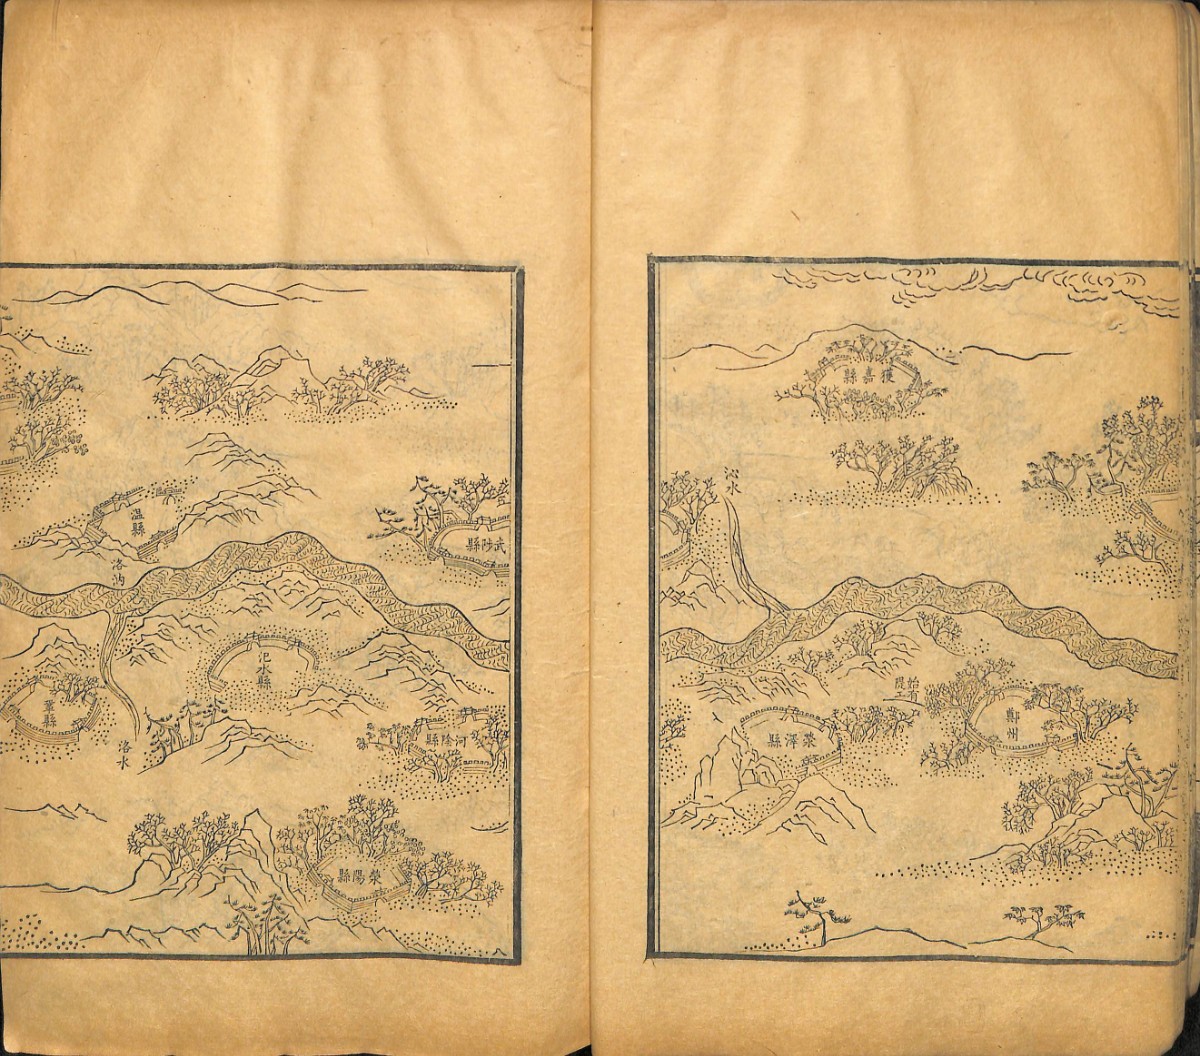 獲嘉縣
沁水
始有
鄭州
滎澤縣
武陟縣
温縣
洛汭
汜水縣
鞏縣
洛水
河陰縣
滎陽縣
八